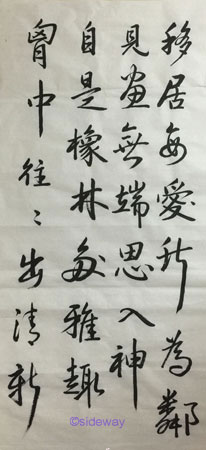 移居每愛竹為鄰
見畫無端思入神
自是橡林多雅趣
胷中往〻出清新
©sideway